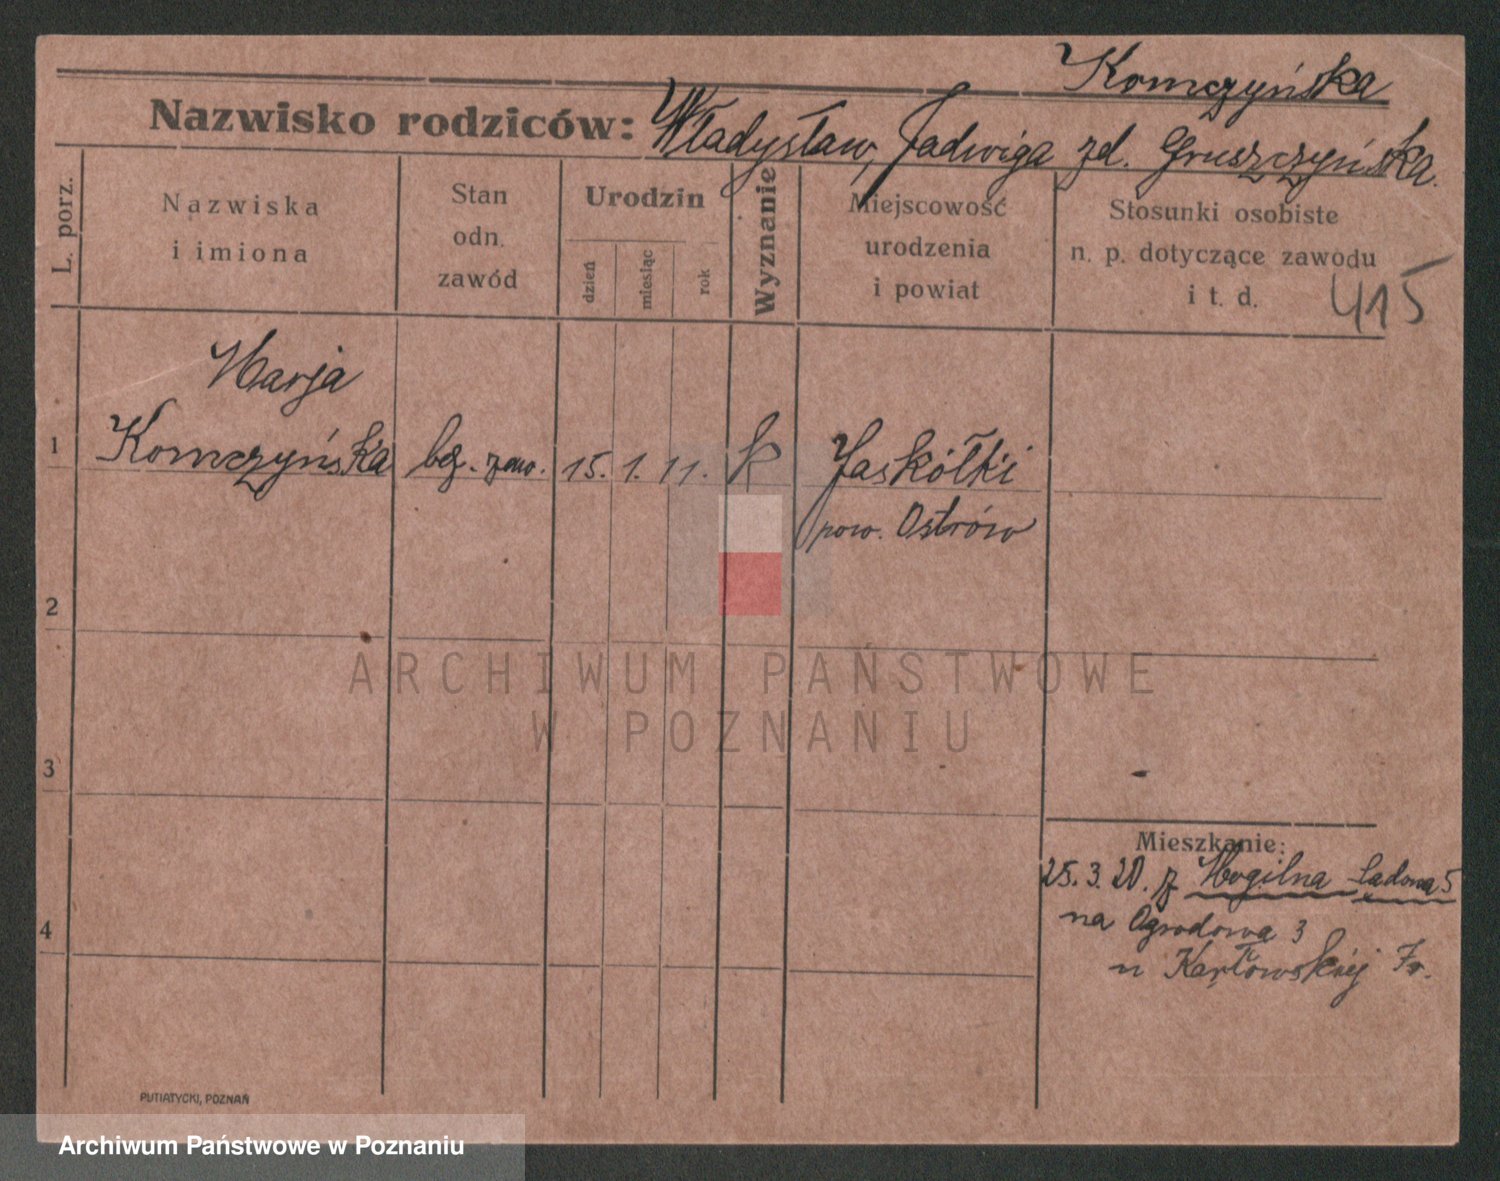 Komczyńska
Nazwisko rodziców: Władysław, Jadwiga zd. Gruszczyńska.
L. porz.
Nazwiska
i imiona
Stan
odn.
zawód
Urodzin
dzień
miesiąc
rok
Wyznanie
Miejscowość
urodzenia
i powiat
Stosunki osobiste
n. p. dotyczące zawodu
i t. d.
415
Marja
1 Komczyńska bez. zaw. 15. 1. 11. k Jaskółki
pow. Ostrów
2
3
4
Mieszkanie:
25. 3. 20. z Mogilna Sadowa 5
na Ogrodowa 3
u Karłowskiej Fr.
PUTIATYCKI, POZNAŃ
ARCHIWUM PAŃSTWOWE
W POZNANIU
Archiwum Państwowe w Poznaniu